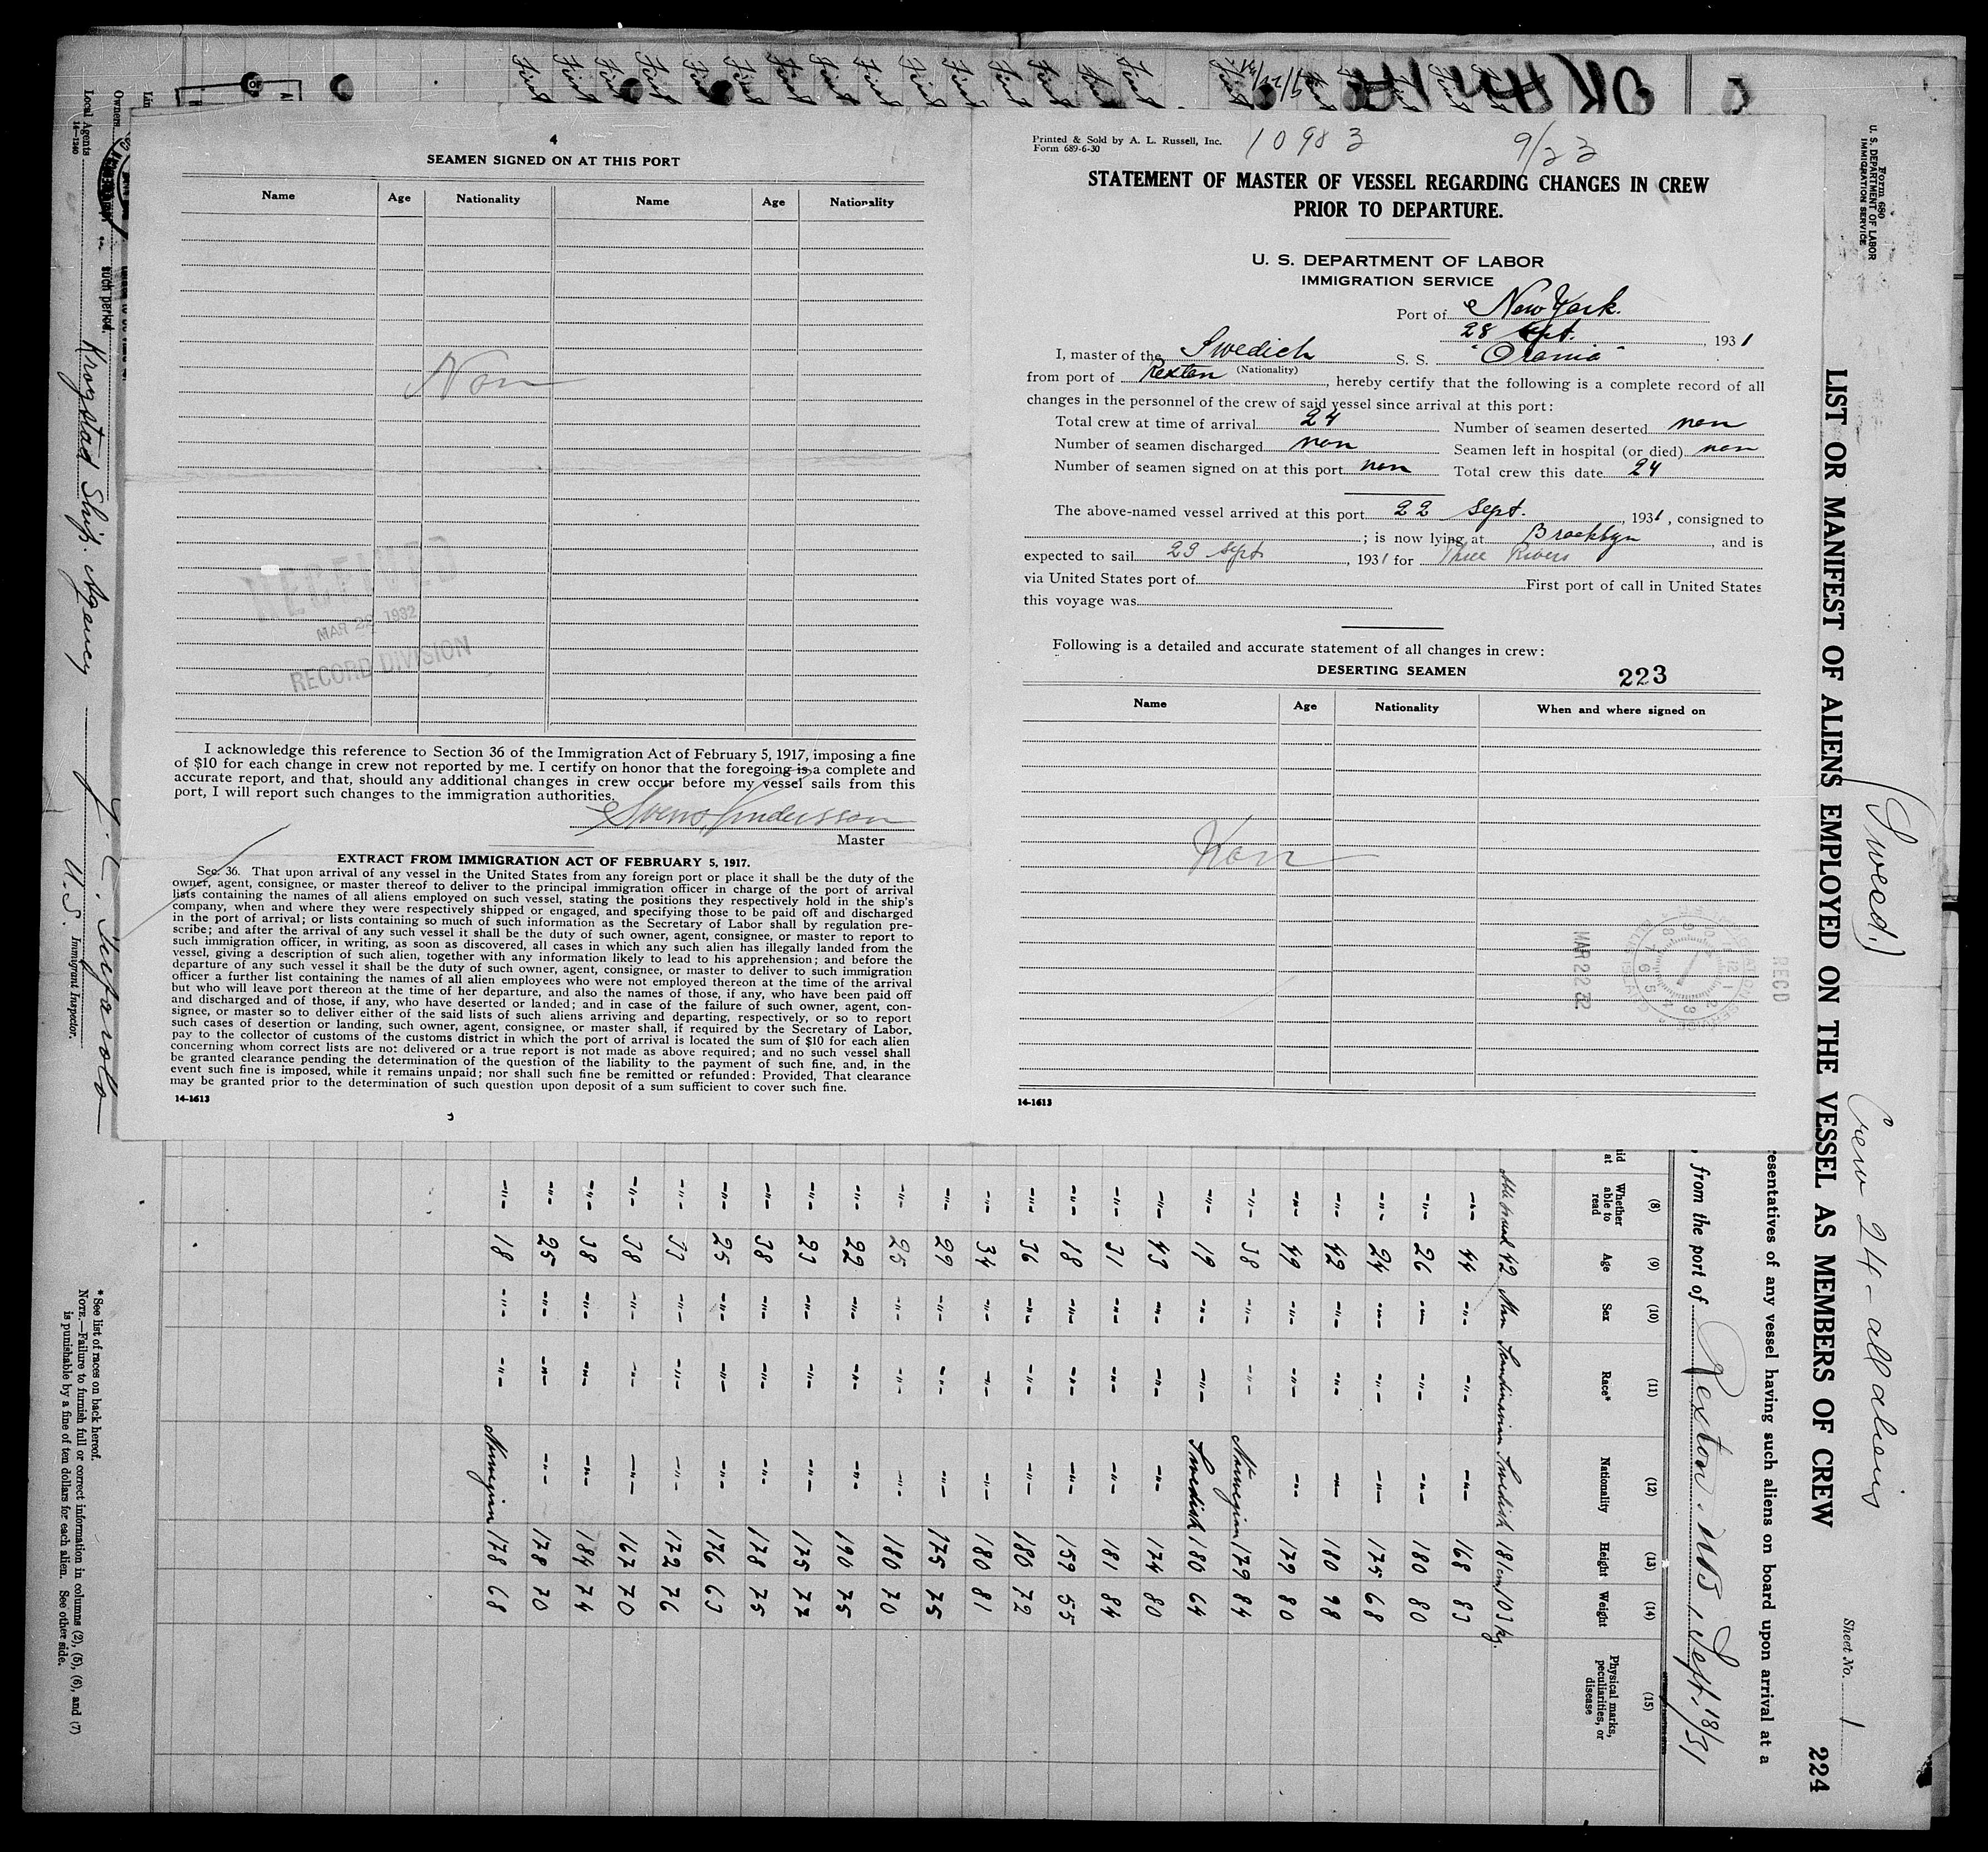 4
SEAMEN SIGNED ON AT THIS PORT
Name Age Nationality Name Age Nationality
Non
RECEIVED
MAR 22 1932
RECORD DIVISION
I acknowledge this reference to Section 36 of the Immigration Act of February 5, 1917, imposing a fine
of $10 for each change in crew not reported by me. I certify on honor that the foregoing is a complete and
accurate report, and that, should any additional changes in crew occur before my vessel sails from this
port, I will report such changes to the immigration authorities.
Master
EXTRACT FROM IMMIGRATION ACT OF FEBRUARY 5, 1917.
Sec. 36. That upon arrival of any vessel in the United States from any foreign port or place it shall be the duty of the
owner, agent, consignee, or master thereof to deliver to the principal immigration officer in charge of the port of arrival
lists containing the names of all aliens employed on such vessel, stating the positions they respectively hold in the ship's
company, when and where they were respectively shipped or engaged, and specifying those to be paid off and discharged
in the port of arrival; or lists containing so much of such information as the Secretary of Labor shall by regulation pre-
scribe; and after the arrival of any such vessel it shall be the duty of such owner, agent, consignee, or master to report to
such immigration officer, in writing, as soon as discovered, all cases in which any such alien has illegally landed from the
vessel, giving a description of such alien, together with any information likely to lead to his apprehension; and before the
departure of any such vessel it shall be the duty of such owner, agent, consignee, or master to deliver to such immigration
officer a further list containing the names of all alien employees who were not employed thereon at the time of the arrival
but who will leave port thereon at the time of her departure, and also the names of those, if any, who have been paid off
and discharged and of those, if any, who have deserted or landed; and in case of the failure of such owner, agent, con-
signee, or master so to deliver either of the said lists of such aliens arriving and departing, respectively, or so to report
such cases of desertion or landing, such owner, agent, consignee, or master shall, if required by the Secretary of Labor,
pay to the collector of customs of the customs district in which the port of arrival is located the sum of $10 for each alien
concerning whom correct lists are not delivered or a true report is not made as above required; and no such vessel shall
be granted clearance pending the determination of the question of the liability to the payment of such fine, and, in the
event such fine is imposed, while it remains unpaid; nor shall such fine be remitted or refunded: Provided, That clearance
may be granted prior to the determination of such question upon deposit of a sum sufficient to cover such fine.
14-1613
Printed & Sold by A. L. Russell, Inc.
Form 689-6-30
10983 9/23
STATEMENT OF MASTER OF VESSEL REGARDING CHANGES IN CREW
PRIOR TO DEPARTURE.
U. S. DEPARTMENT OF LABOR
IMMIGRATION SERVICE
Port of New York.
28 Sept. , 1931
I, master of the Swedich S. S. "Orania"
(Nationality)
from port of Rexton , hereby certify that the following is a complete record of all
changes in the personnel of the crew of said vessel since arrival at this port:
Total crew at time of arrival 24 Number of seamen deserted non
Number of seamen discharged non Seamen left in hospital (or died) non
Number of seamen signed on at this port non Total crew this date 24
The above-named vessel arrived at this port 22 Sept. , 1931 , consigned to
; is now lying at Brooklyn , and is
expected to sail 29 Sept. , 1931 for Three Rivers
via United States port of First port of call in United States
this voyage was
Following is a detailed and accurate statement of all changes in crew:
DESERTING SEAMEN 223
Name Age Nationality When and where signed on
Non
RECD
MAR 22 32
14-1613
Form 680
U. S. DEPARTMENT OF LABOR
IMMIGRATION SERVICE
(Swed.)
Crew 24 - all aliens
Sheet No. 1
LIST OR MANIFEST OF ALIENS EMPLOYED ON THE VESSEL AS MEMBERS OF CREW
224
resentatives of any vessel having such aliens on board upon arrival at a
, from the port of Rexton, N.B., Sept. 18/31
(8) (9) (10) (11) (12) (13) (14) (15)
Whether able to read Age Sex Race* Nationality Height Weight Physical marks, peculiarities, or disease
42 Man Scandinavian Swedish 181 cm 103 kg.
-"- 44 -"- -"- -"- 168 83
-"- 26 -"- -"- -"- 180 80
-"- 24 -"- -"- -"- 175 68
-"- 42 -"- -"- -"- 180 98
-"- 49 -"- -"- -"- 179 80
-"- 38 -"- -"- Norwegian 179 84
-"- 19 -"- -"- Swedish 180 64
-"- 43 -"- -"- -"- 174 80
-"- 31 -"- -"- -"- 181 84
-"- 18 -"- -"- -"- 159 55
-"- 36 -"- -"- -"- 180 72
-"- 34 -"- -"- -"- 180 81
-"- 29 -"- -"- -"- 175 75
-"- 25 -"- -"- -"- 180 70
-"- 22 -"- -"- -"- 190 75
-"- 23 -"- -"- -"- 175 77
-"- 38 -"- -"- -"- 178 75
-"- 25 -"- -"- -"- 176 63
-"- 33 -"- -"- -"- 172 76
-"- 38 -"- -"- -"- 167 70
-"- 38 -"- -"- -"- 184 74
-"- 25 -"- -"- -"- 178 70
-"- 18 -"- -"- Norwegian 178 68
Owners
Local Agents Krogstad Ship. Agency
14-1240
such period.
U.S. Immigrant Inspector.
* See list of races on back hereof.
NOTE.—Failure to furnish full or correct information in columns (2), (5), (6), and (7)
is punishable by a fine of ten dollars for each alien. See other side.